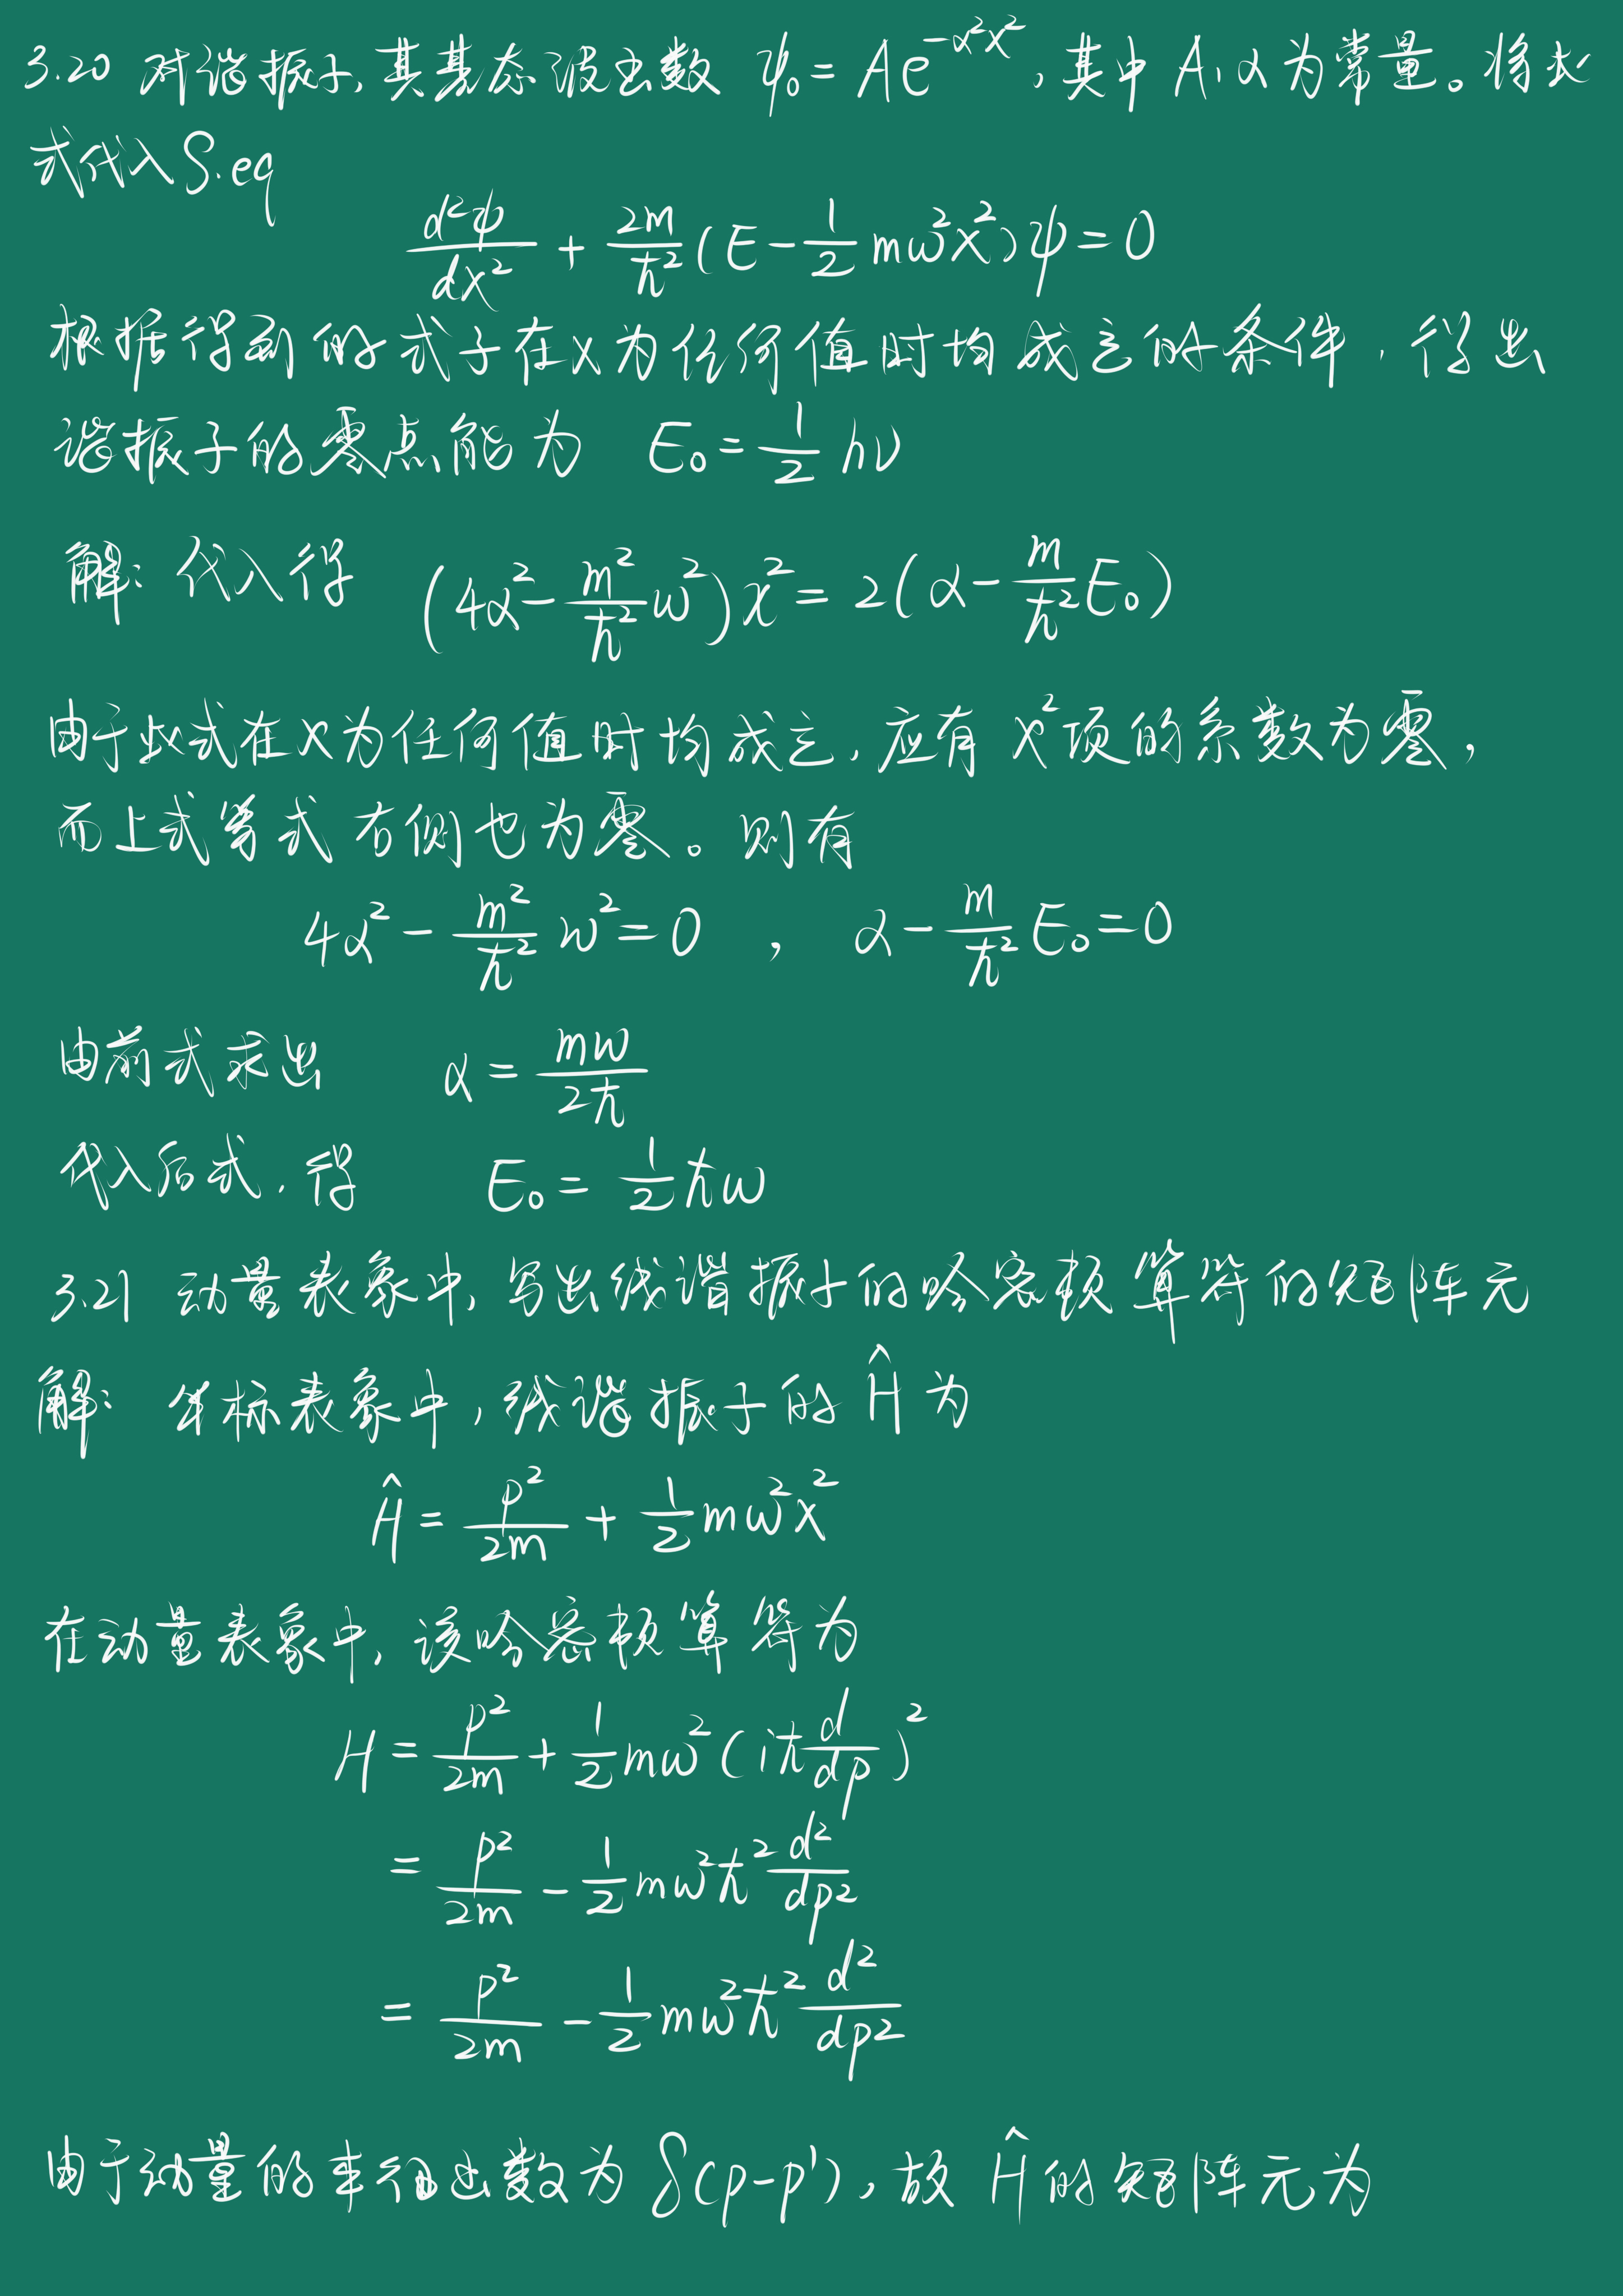 3.20 对谐振子,其基态波函数 ψ₀ = Ae^{-α²x²},其中 A,α为常量。将此
式代入S.eq
d²ψ/dx² + 2m/ħ² (E - 1/2 mω²x²)ψ = 0
根据得到的式子在x为任何值时均成立的条件,得出
谐振子的零点能为 E₀ = 1/2 hν
解: 代入得 (4α² - m²/ħ² ω²)x² = 2(α - m/ħ² E₀)
由于此式在x为任何值时均成立,应有 x²项的系数为零,
而上式等式右侧也为零。则有
4α² - m²/ħ² ω² = 0 , α - m/ħ² E₀ = 0
由前式求出 α = mω/2ħ
代入后式,得 E₀ = 1/2 ħω
3.21 动量表象中,写出线谐振子的哈密顿算符的矩阵元
解: 坐标表象中,线谐振子的 Ĥ 为
Ĥ = p²/2m + 1/2 mω²x²
在动量表象中,该哈密顿算符为
H = p²/2m + 1/2 mω² (iħ d/dp)²
= p²/2m - 1/2 mω²ħ² d²/dp²
= p²/2m - 1/2 mω²ħ² d²/dp²
由于动量的本征函数为 δ(p-p'),故 Ĥ 的矩阵元为